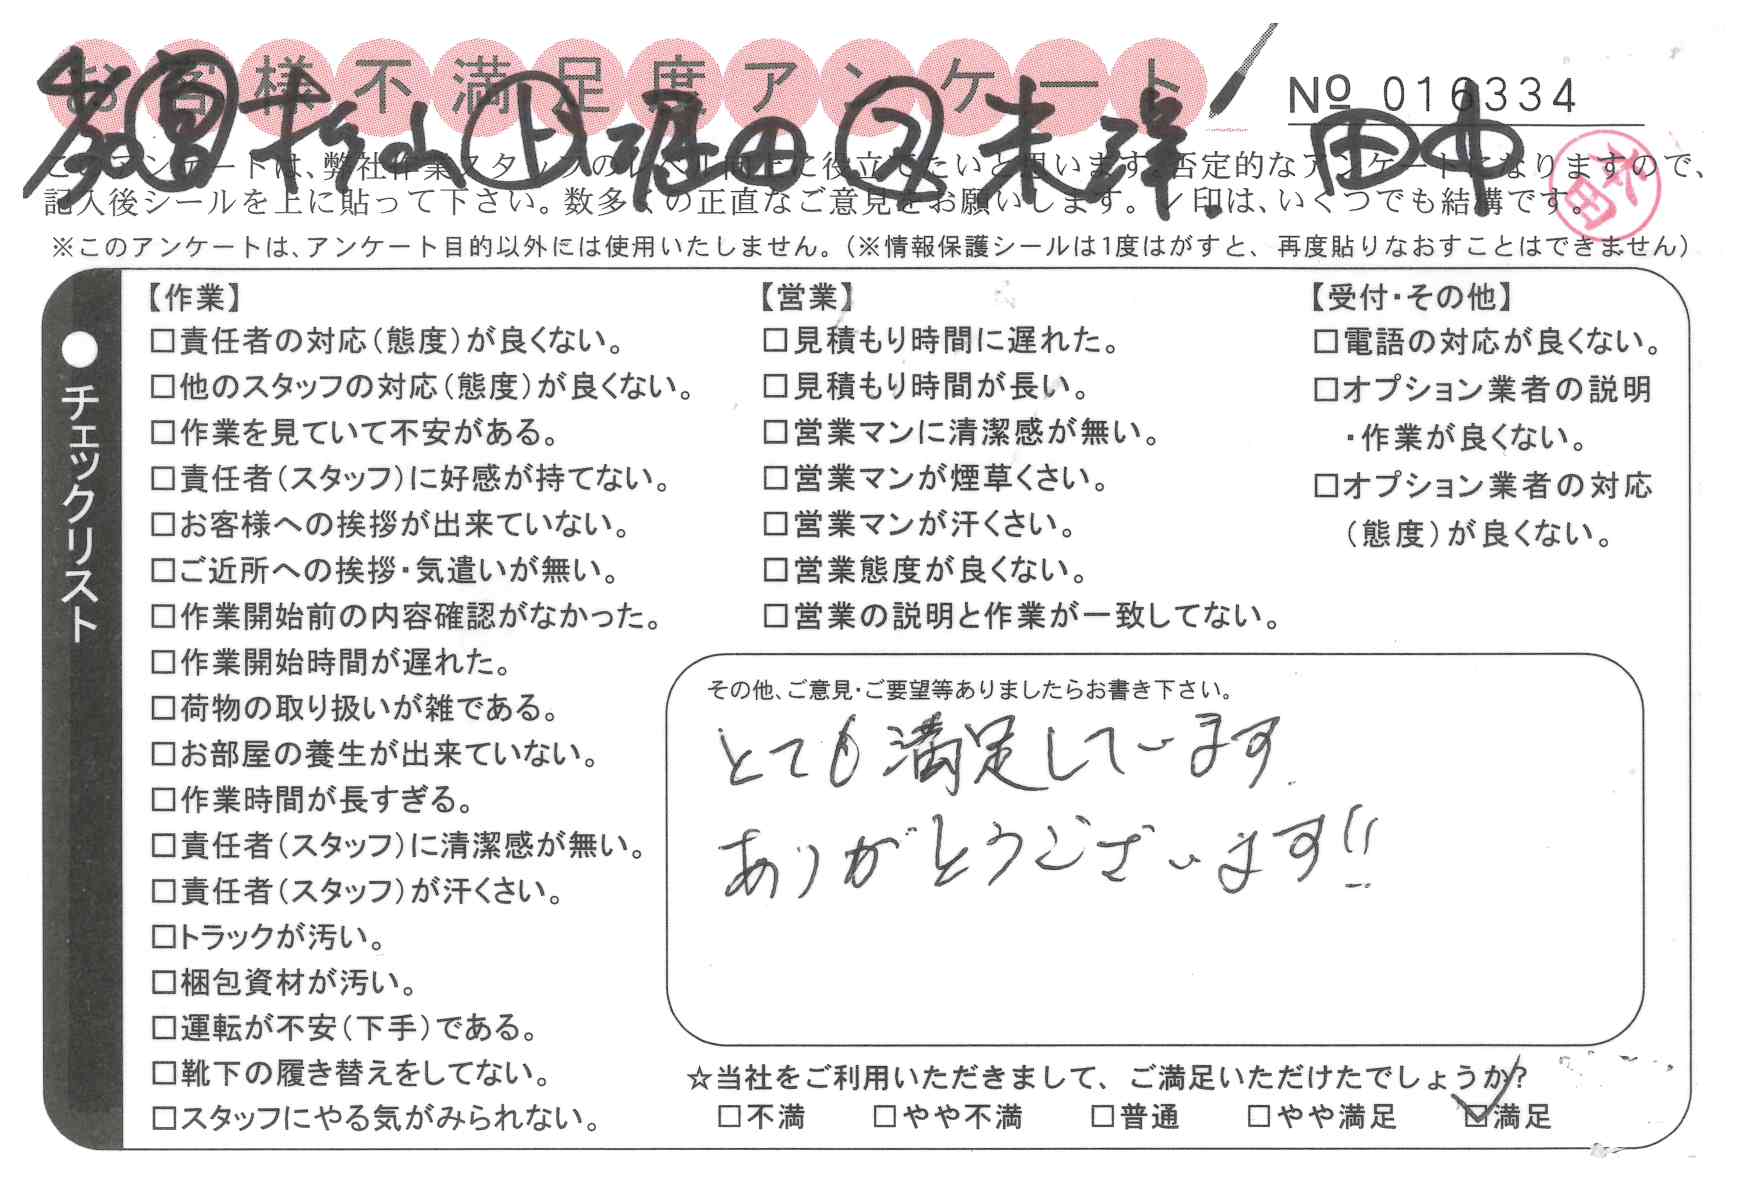 お客様不満足度アンケート
№ 016334
杉山 上 堀田 又 末澤 田中
このアンケートは、弊社作業スタッフのレベル向上に役立てたいと思います。否定的なアンケートになりますので、
記入後シールを上に貼って下さい。数多くの正直なご意見をお願いします。✓印は、いくつでも結構です。
※このアンケートは、アンケート目的以外には使用いたしません。（※情報保護シールは1度はがすと、再度貼りなおすことはできません）
●チェックリスト
【作業】
□責任者の対応（態度）が良くない。
□他のスタッフの対応（態度）が良くない。
□作業を見ていて不安がある。
□責任者（スタッフ）に好感が持てない。
□お客様への挨拶が出来ていない。
□ご近所への挨拶・気遣いが無い。
□作業開始前の内容確認がなかった。
□作業開始時間が遅れた。
□荷物の取り扱いが雑である。
□お部屋の養生が出来ていない。
□作業時間が長すぎる。
□責任者（スタッフ）に清潔感が無い。
□責任者（スタッフ）が汗くさい。
□トラックが汚い。
□梱包資材が汚い。
□運転が不安（下手）である。
□靴下の履き替えをしてない。
□スタッフにやる気がみられない。
【営業】
□見積もり時間に遅れた。
□見積もり時間が長い。
□営業マンに清潔感が無い。
□営業マンが煙草くさい。
□営業マンが汗くさい。
□営業態度が良くない。
□営業の説明と作業が一致してない。
【受付・その他】
□電話の対応が良くない。
□オプション業者の説明
・作業が良くない。
□オプション業者の対応
（態度）が良くない。
その他、ご意見・ご要望等ありましたらお書き下さい。
とても満足しています
ありがとうございます!!
☆当社をご利用いただきまして、ご満足いただけたでしょうか?
□不満 □やや不満 □普通 □やや満足 ☑満足